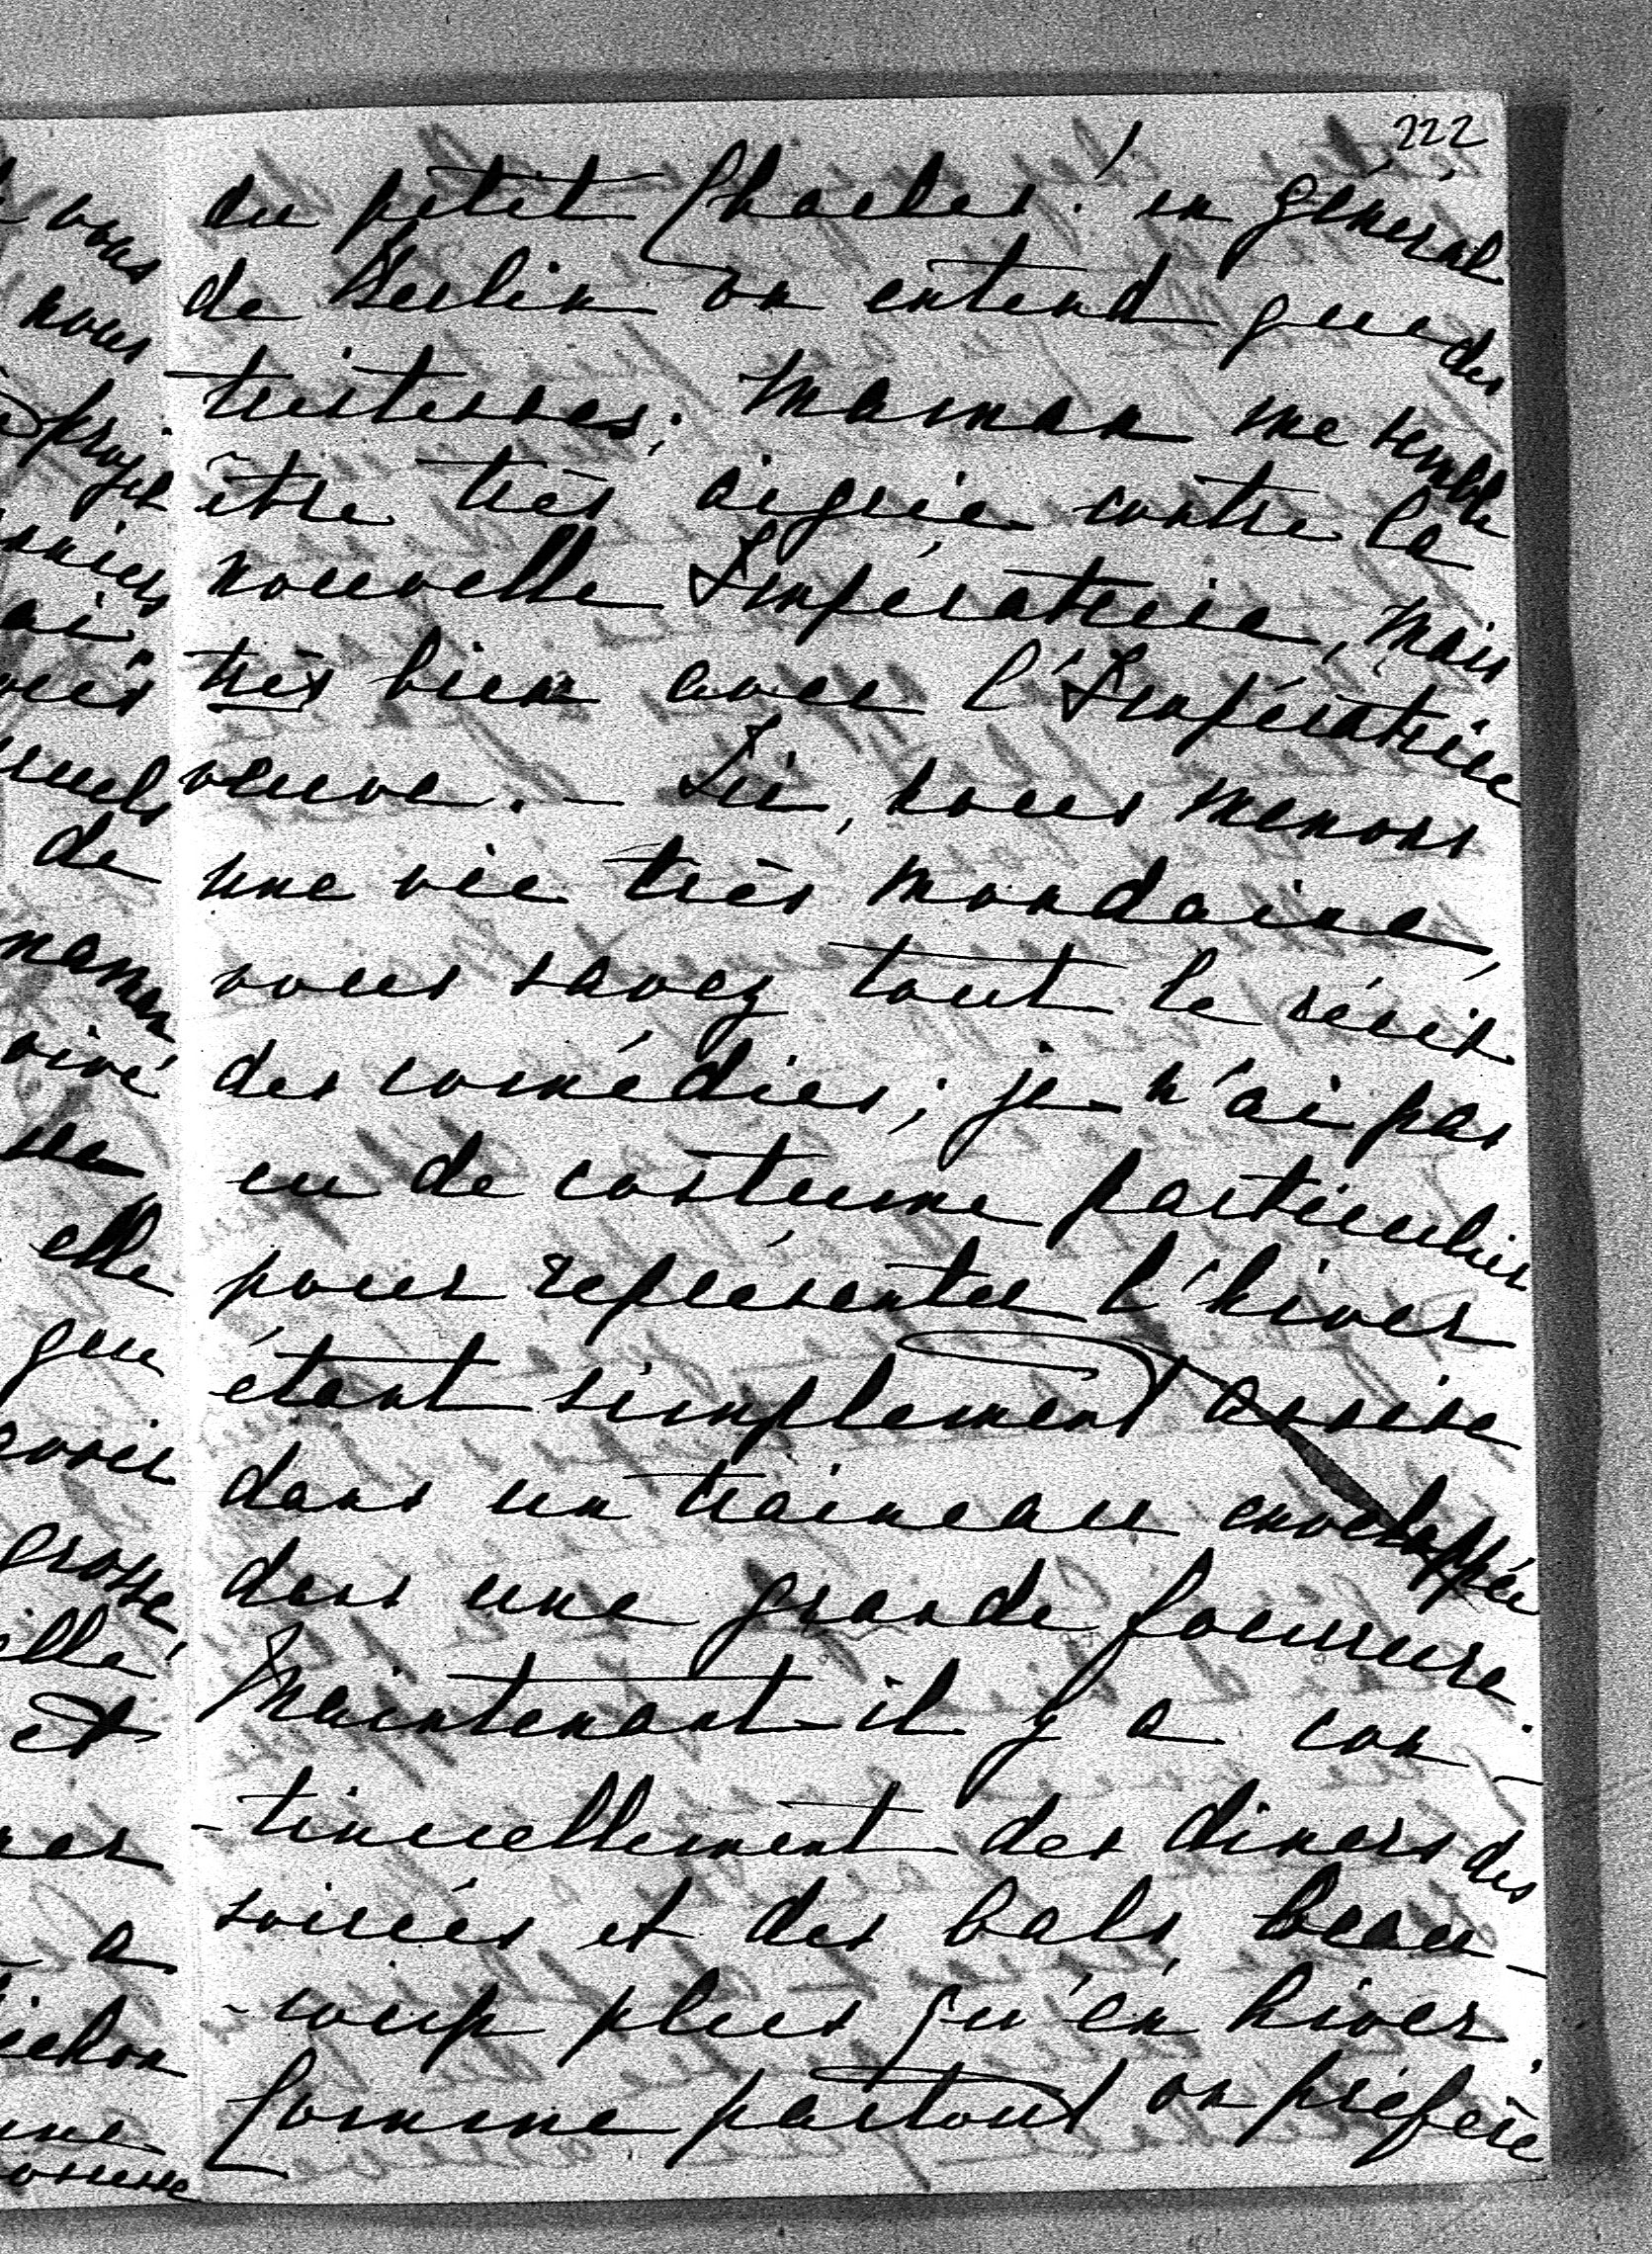 222
du petit Charles! en général
de Berlin on entend que des
tristesses; Maman me semble
être très aigrie contre la
nouvelle Impératrice, mais
très bien avec l'Impératrice
veuve. – Ici, nous menons
une vie très mondaine,
vous savez tout le récit
des comédies; je n'ai pas
eu de costume particulier
pour représenter l'hiver
étant simplement assise
dans un traineau enveloppée
dans une grande fourrure.
Maintenant il y a con-
-tinuellement des diners des
soirées et des bals, beau-
-coup plus qu'en hiver.
Comme partout on préfère
vous
nous
projet
de
maman
elle
que
grosse
et
a